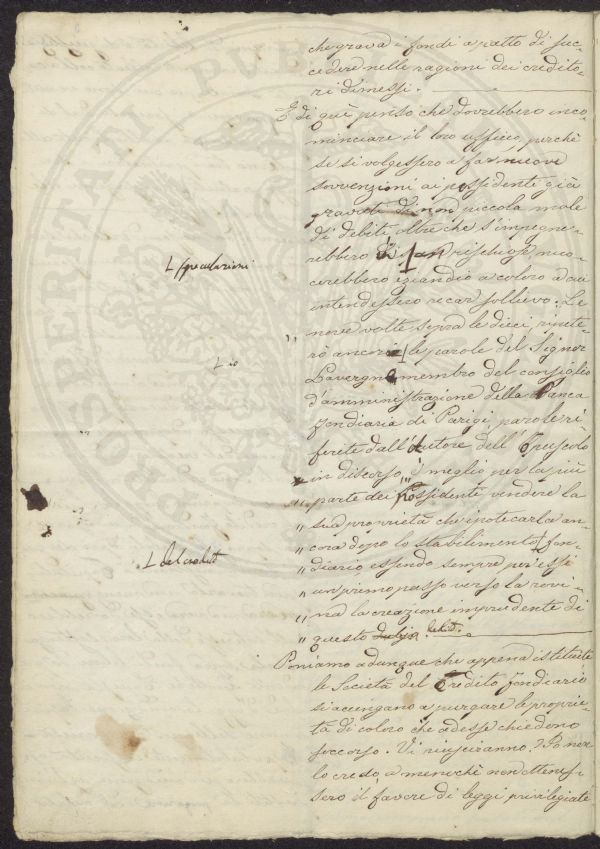 che grava i fondi a patto di suc-
cedere nelle ragioni dei credito-
ri dimessi.
E di quì penso, che dovrebbero inco-
minciare il loro ufficio, perchè
se si volgessero a far nuove
sovvenzioni ai possidenti già
gravati di non piccola mole
di debiti, oltre che s'impegne-
rebbero in rischiose nuo-
L speculazioni
cerebbero eziandio a coloro a cui
intendessero recar sollievo. Le
nove volte sopra le dieci, ripete-
rò ancor le parole del Signor
L io
Lavergne membro del consiglio
d'amministrazione della Banca
fondiaria di Parigi, parole ri-
ferete dall'Autore dell'Opuscolo
in discorso, " è meglio per la più
" parte dei Possidenti vendere la
" sua proprietà che ipotecarla an-
" cora dopo lo stabilimento L fon-
L del credito
" diario essendo sempre per essi
" un primo passo verso la rovi-
" na la creazione imprudente di
" questo debito.
Poniamo adunque che appena istituite
le Società del Credito fondiario
si accingano a purgare le proprie-
tà di coloro che adesse chiedono
soccorso. Vi riusciranno? Io non
lo credo a menochè non ottenes-
sero il favore di leggi privilegiate